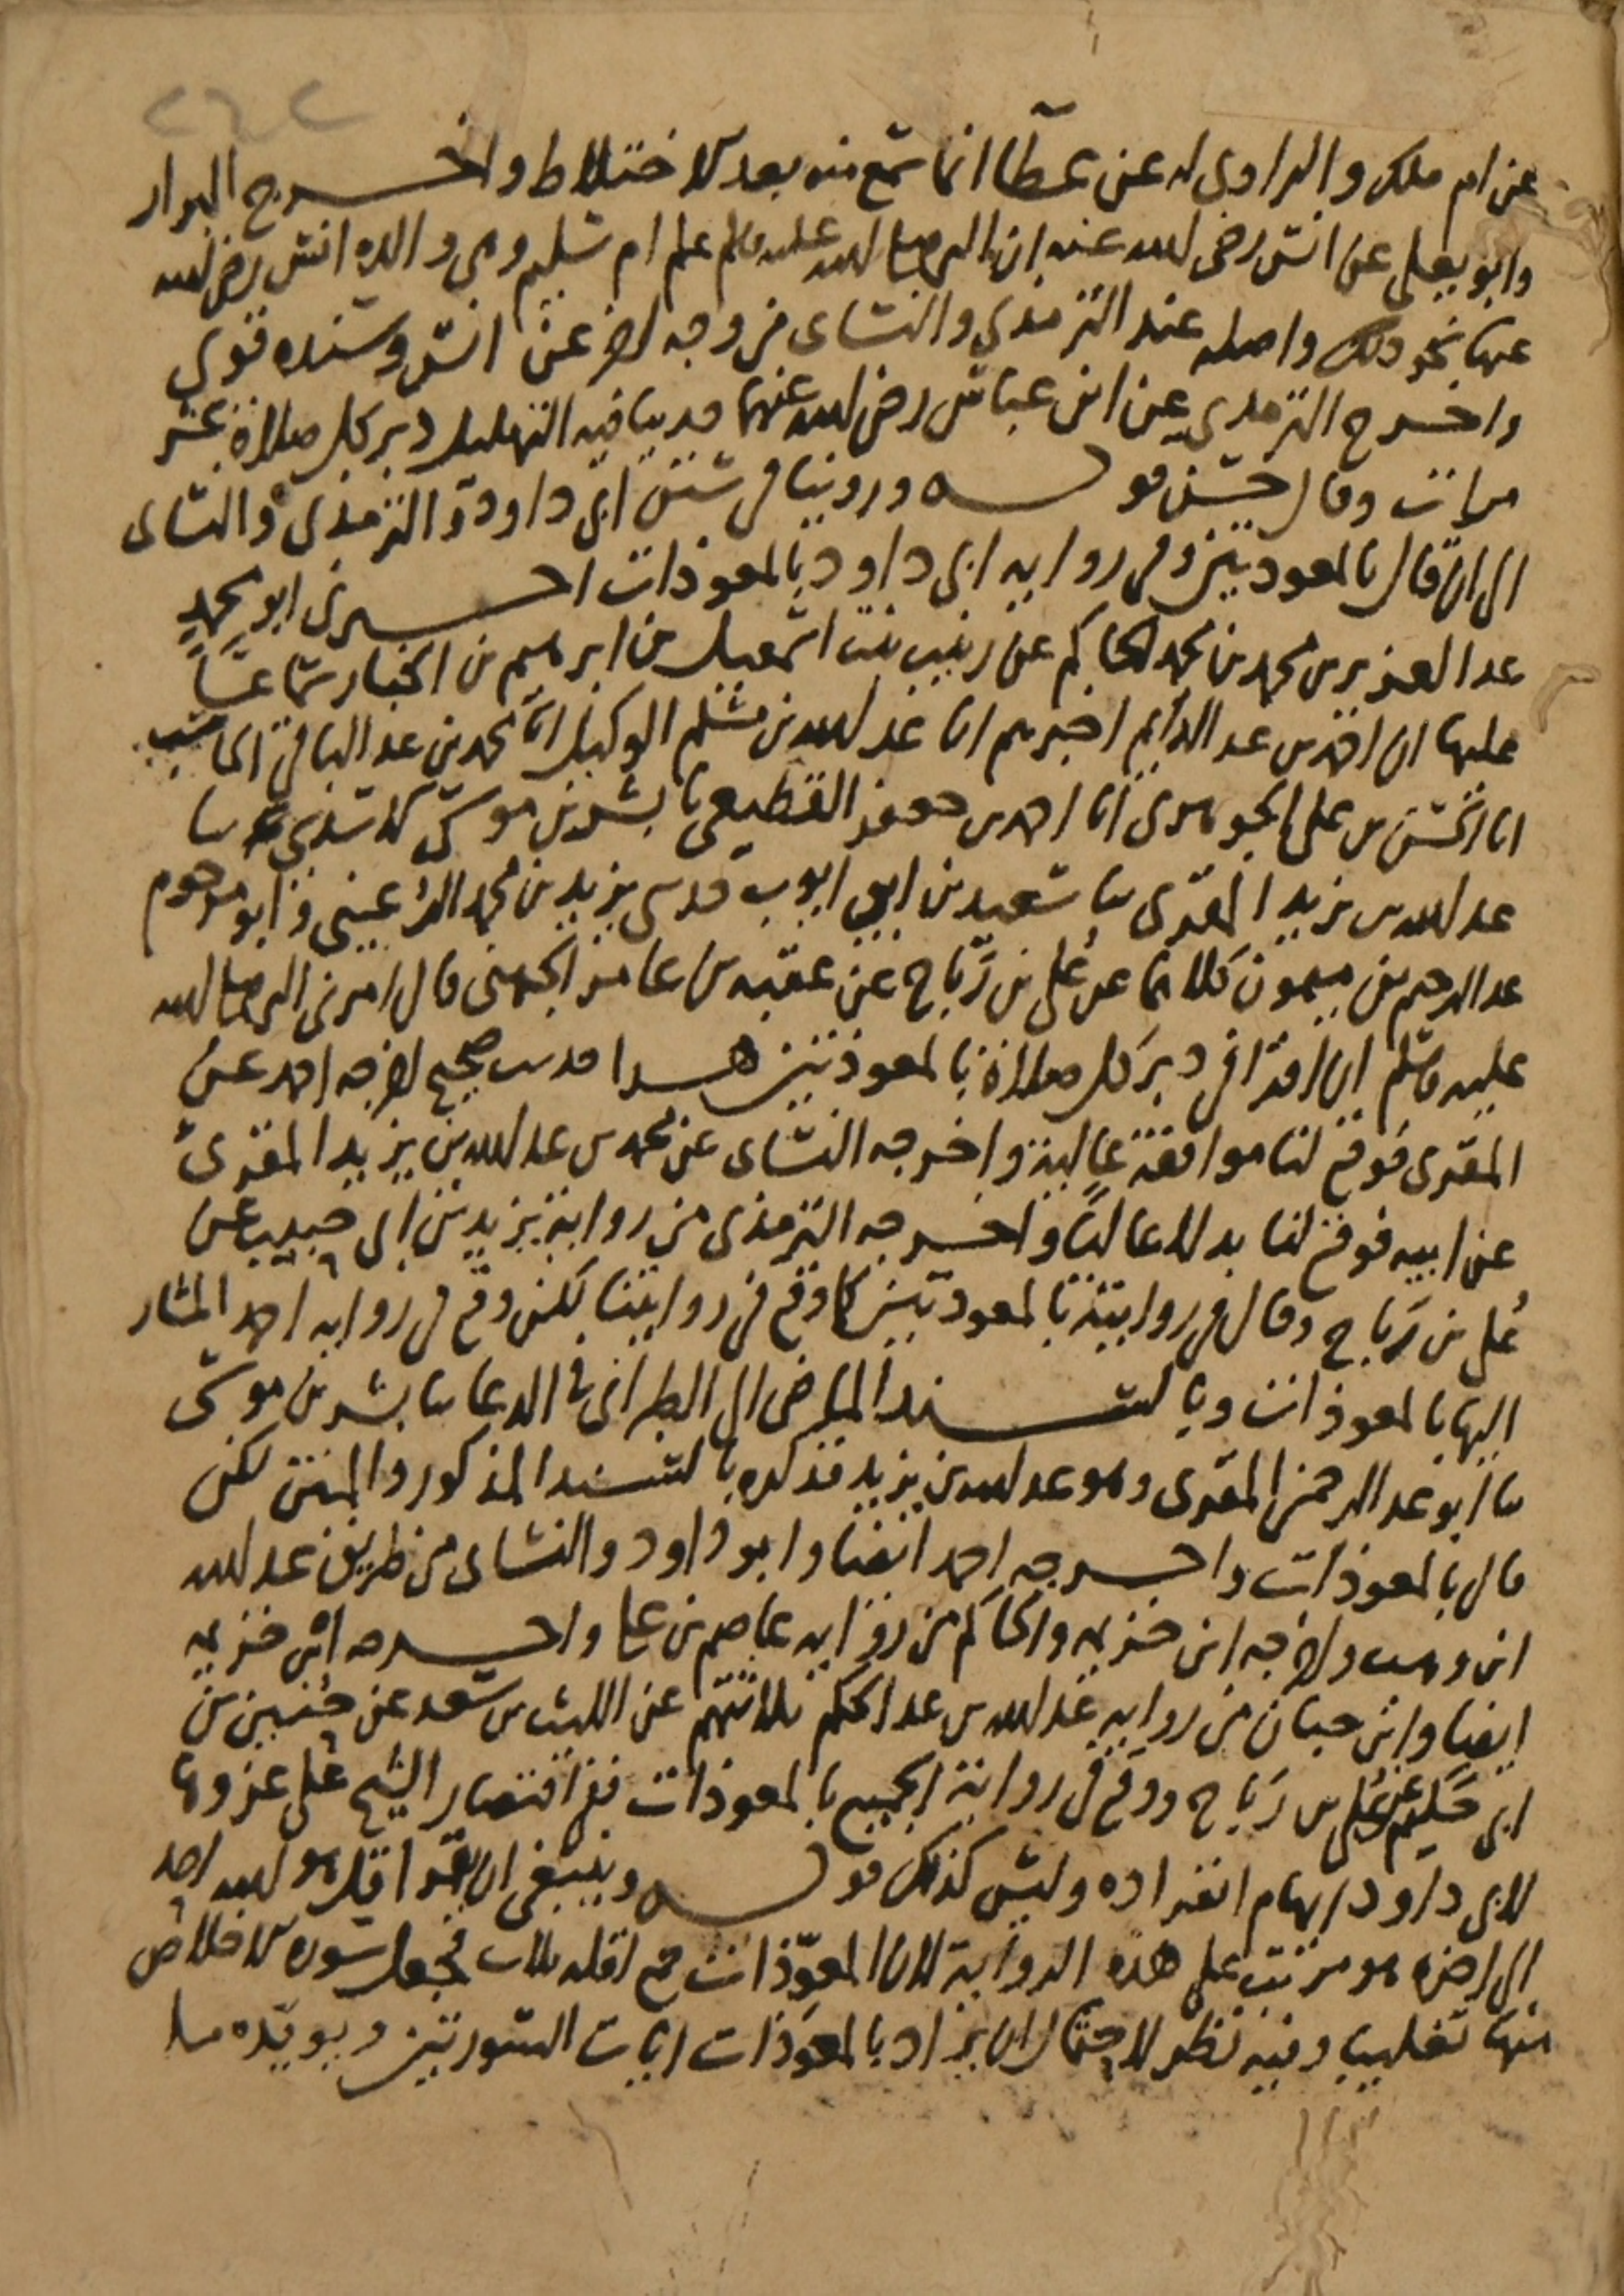 ٢٦٢
عن ام ملك والراوي له عن عطا انما سمع منه بعد الاختلاط واخرج البزار
وابو يعلى عن انس رضي الله عنه ان النبي صلى الله عليه وسلم علم ام سليم وهي والدة انس رضي الله
عنها نحو ذلك واصله عند الترمذي والنساي من وجه اخر عن انس وسنده قوي
واخرج الترمذي عن ابن عباس رضي الله عنهما حديثا فيه التهليل دبر كل صلاة عشر
مرات وقال حسن قوله وروينا في سنن ابي داود والترمذي والنساي
الى ان قال بالمعوذتين وفي رواية ابي داود بالمعوذات اخبرني ابو محمد
عبد العزيز بن محمد بن محمد الحاكم عن زينب بنت اسمعيل بن ابرهيم بن الخباز سماعا
عليها ان احمد بن عبد الدايم اخبرهم انا عبد الله بن مسلم الوكيل انا محمد بن عبد الباقي الحاسب
انا الحسن بن علي الجوهري انا احمد بن جعفر القطيعي نا بشر بن موسى الاسدي نا
عبد الله بن يزيد المقري نا سعيد بن ابي ايوب حدثني يزيد بن محمد الرعيني وابو مرحوم
عبد الرحيم بن ميمون كلاهما عن علي بن رباح عن عقبة بن عامر الجهني قال امرني النبي صلى الله
عليه وسلم ان اقرا في دبر كل صلاة بالمعوذتين هذا حديث صحيح اخرجه احمد عن
المقري فوقع لنا موافقة عالية واخرجه النساي عن محمد بن عبد الله بن يزيد المقري
عن ابيه فوقع لنا بدلا عاليا واخرجه الترمذي من رواية يزيد بن ابي حبيب عن
علي بن رباح وقال في روايته بالمعوذتين كما وقع في روايتنا لكن وقع في رواية احمد المشار
اليها بالمعوذات وبالسند الماضي الى الطبراني في الدعا نا بشر بن موسى
نا ابو عبد الرحمن المقري وهو عبد الله بن يزيد فذكره بالسند المذكور والمتن لكن
قال بالمعوذات واخرجه احمد ايضا وابو داود والنساي من طريق عبد الله
ابن وهب واخرجه ابن خزيمه والحاكم من رواية عاصم بن علي واخرجه ابن خزيمه
ايضا وابن حبان من رواية عبد الله بن عبد الحكم ثلاثتهم عن الليث بن سعد عن حنين بن
ابي حكيم عن علي بن رباح ووقع في رواية الجميع بالمعوذات ففي اقتصار الشيخ على عزوها
لابي داود ايهام انفراده وليس كذلك قوله وينبغي ان يقرا قل هو الله احد
الى اخره هو مرتب على هذه الرواية لان المعوذات جمع اقله ثلاث فجعل سورة الاخلاص
منها تغليبا وفيه نظر لاحتمال ان يراد بالمعوذات ايات السورتين ويويده ما